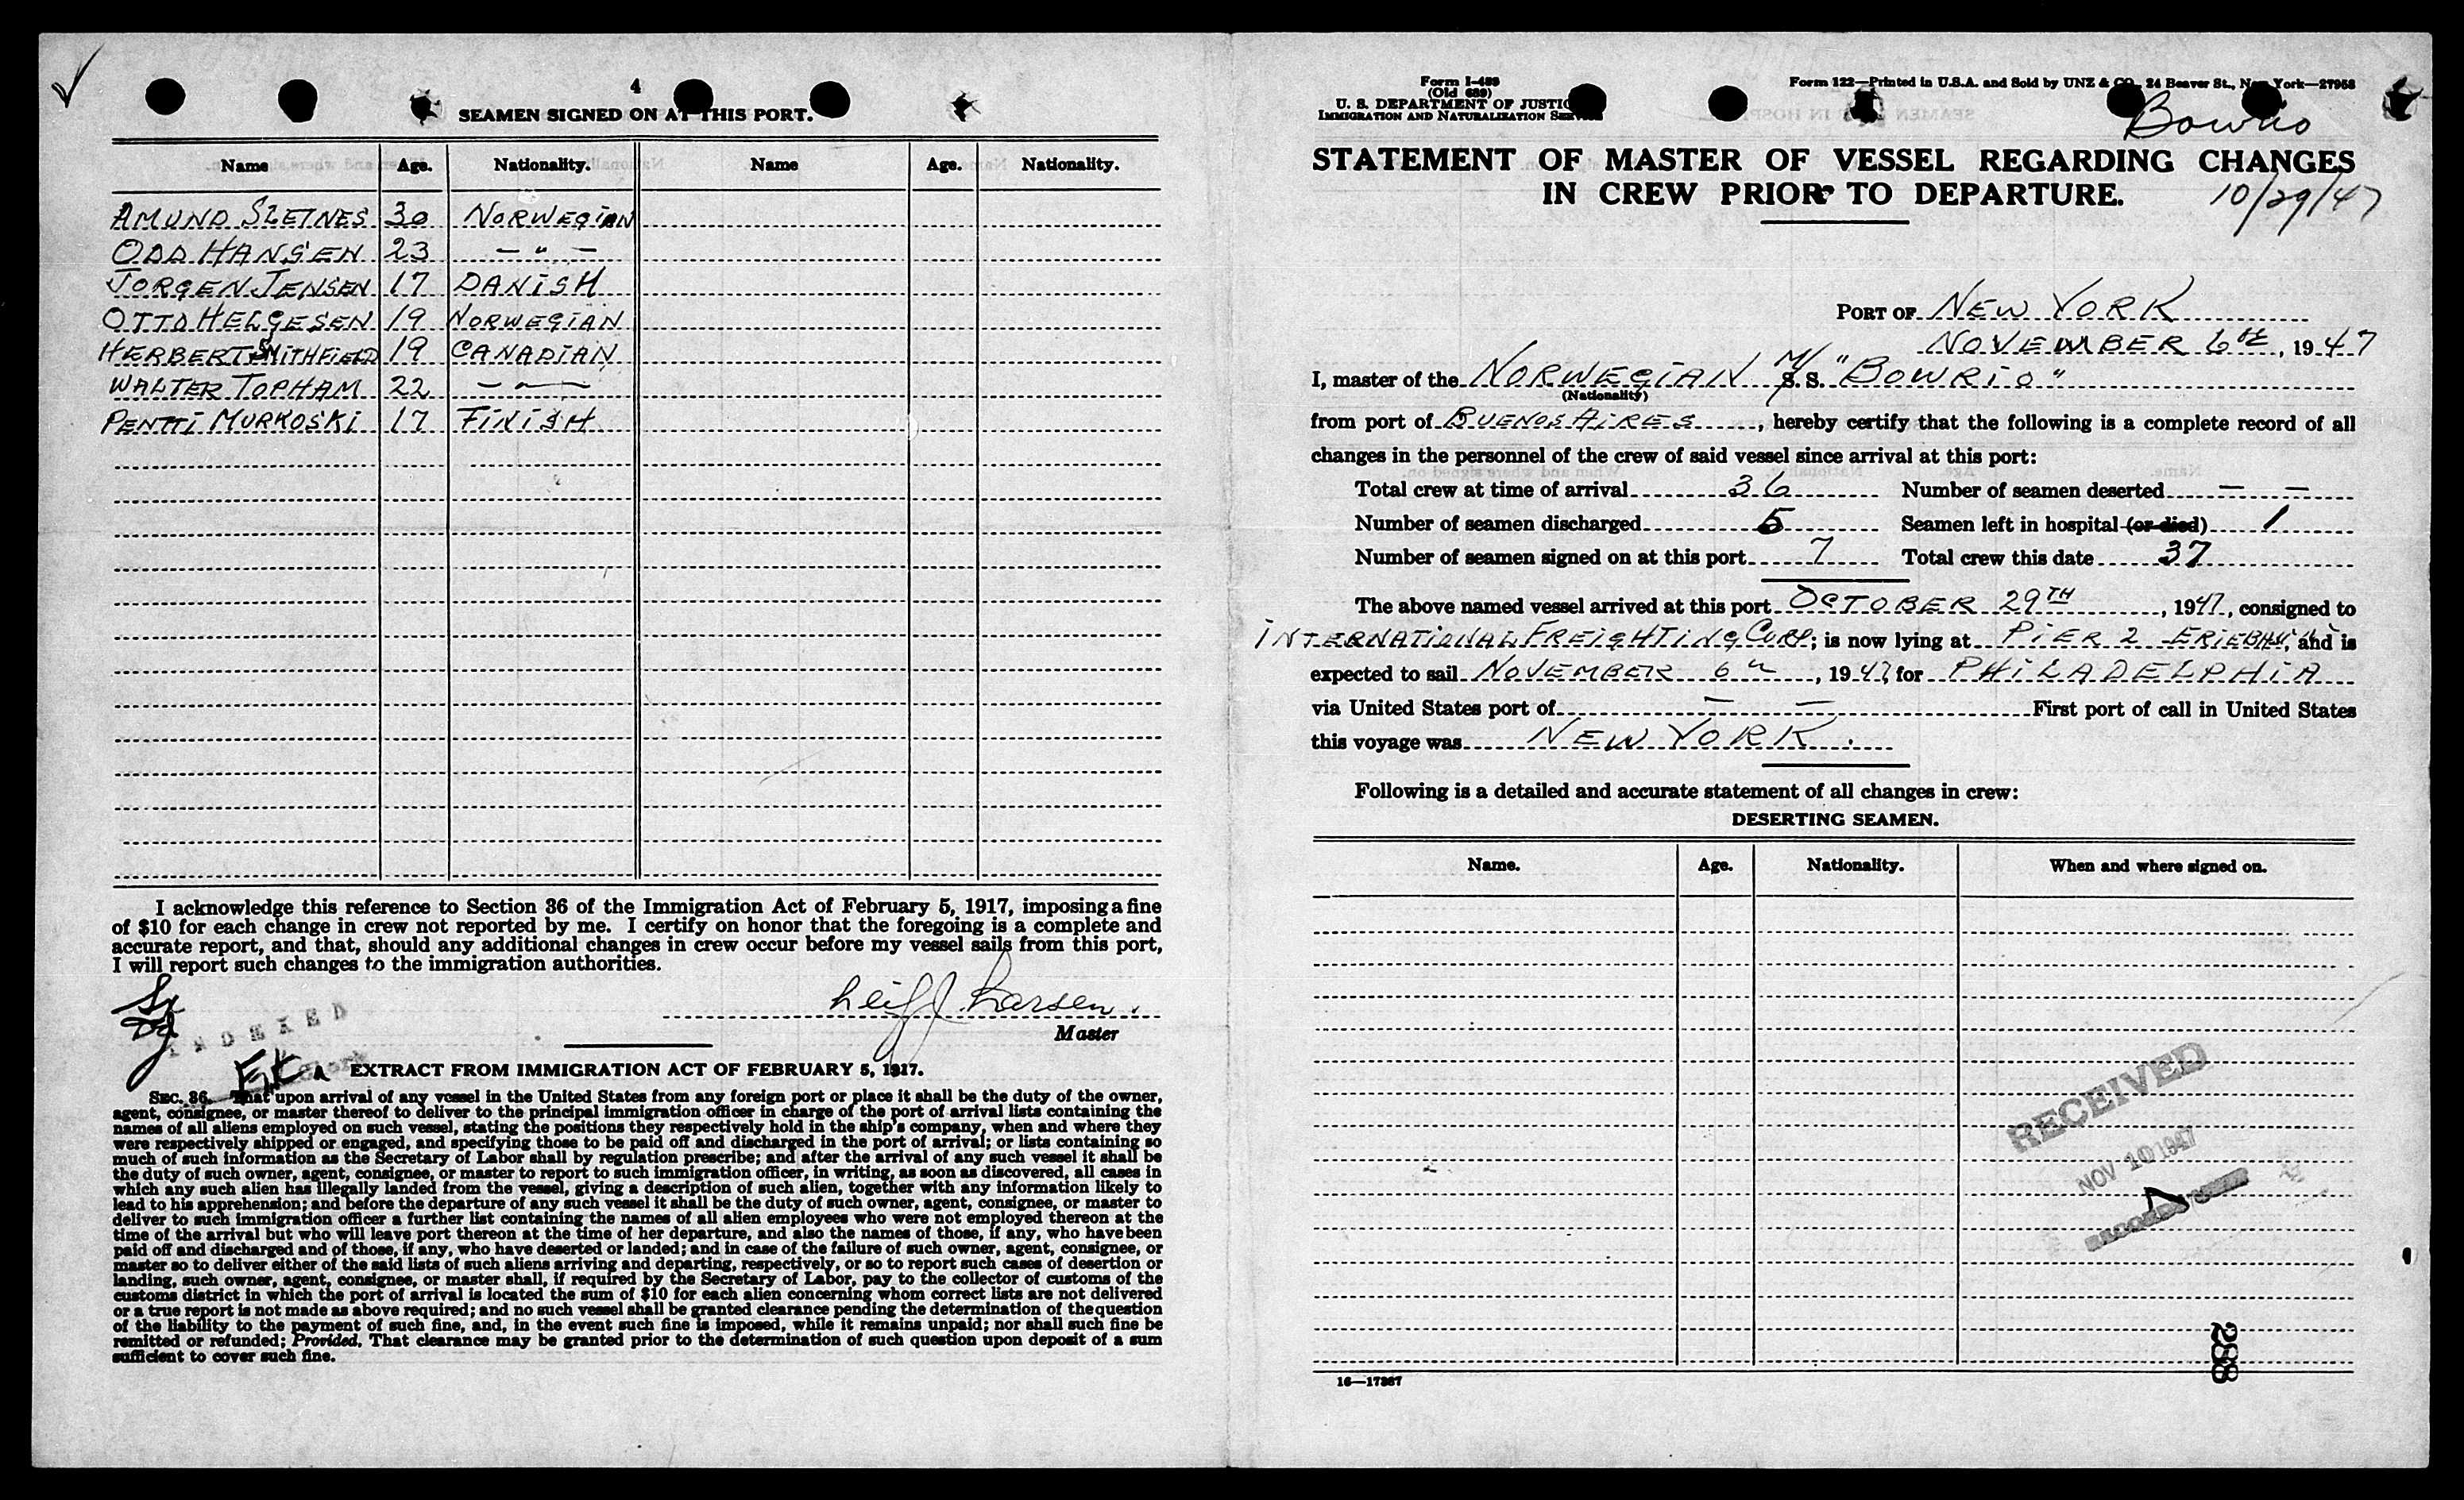 4
SEAMEN SIGNED ON AT THIS PORT.
Name Age. Nationality. Name Age. Nationality.
AMUND SLETNES 30 NORWEGIAN
ODD HANSEN 23 — " —
JORGEN JENSEN 17 DANISH
OTTO HELGESEN 19 NORWEGIAN
HERBERT SMITHFIELD 19 CANADIAN
WALTER TOPHAM 22 — " —
PENTTI MURKOSKI 17 FINISH
I acknowledge this reference to Section 36 of the Immigration Act of February 5, 1917, imposing a fine
of $10 for each change in crew not reported by me. I certify on honor that the foregoing is a complete and
accurate report, and that, should any additional changes in crew occur before my vessel sails from this port,
I will report such changes to the immigration authorities.
Leif J Larsen.
Master
INDEXED
EXTRACT FROM IMMIGRATION ACT OF FEBRUARY 5, 1917.
SEC. 36. That upon arrival of any vessel in the United States from any foreign port or place it shall be the duty of the owner,
agent, consignee, or master thereof to deliver to the principal immigration officer in charge of the port of arrival lists containing the
names of all aliens employed on such vessel, stating the positions they respectively hold in the ship's company, when and where they
were respectively shipped or engaged, and specifying those to be paid off and discharged in the port of arrival; or lists containing so
much of such information as the Secretary of Labor shall by regulation prescribe; and after the arrival of any such vessel it shall be
the duty of such owner, agent, consignee, or master to report to such immigration officer, in writing, as soon as discovered, all cases in
which any such alien has illegally landed from the vessel, giving a description of such alien, together with any information likely to
lead to his apprehension; and before the departure of any such vessel it shall be the duty of such owner, agent, consignee, or master to
deliver to such immigration officer a further list containing the names of all alien employees who were not employed thereon at the
time of the arrival but who will leave port thereon at the time of her departure, and also the names of those, if any, who have been
paid off and discharged and of those, if any, who have deserted or landed; and in case of the failure of such owner, agent, consignee, or
master so to deliver either of the said lists of such aliens arriving and departing, respectively, or so to report such cases of desertion or
landing, such owner, agent, consignee, or master shall, if required by the Secretary of Labor, pay to the collector of customs of the
customs district in which the port of arrival is located the sum of $10 for each alien concerning whom correct lists are not delivered
or a true report is not made as above required; and no such vessel shall be granted clearance pending the determination of the question
of the liability to the payment of such fine, and, in the event such fine is imposed, while it remains unpaid; nor shall such fine be
remitted or refunded; Provided, That clearance may be granted prior to the determination of such question upon deposit of a sum
sufficient to cover such fine.
Form I-489
(Old 689)
U. S. DEPARTMENT OF JUSTICE
IMMIGRATION AND NATURALIZATION SERVICE
Form 122—Printed in U.S.A. and Sold by UNZ & CO., 24 Beaver St., New York—27958
Bowrio
STATEMENT OF MASTER OF VESSEL REGARDING CHANGES
IN CREW PRIOR TO DEPARTURE.
10/29/47
PORT OF NEW YORK
NOVEMBER 6th, 1947
I, master of the NORWEGIAN M/S. S. "BOWRIO"
(Nationality)
from port of BUENOS AIRES, hereby certify that the following is a complete record of all
changes in the personnel of the crew of said vessel since arrival at this port:
Total crew at time of arrival 36 Number of seamen deserted — —
Number of seamen discharged 5 Seamen left in hospital (or died) 1
Number of seamen signed on at this port 7 Total crew this date 37
The above named vessel arrived at this port OCTOBER 29TH, 1947, consigned to
INTERNATIONAL FREIGHTING CORP; is now lying at PIER 2 , and is
expected to sail NOVEMBER 6th, 1947, for PHILADELPHIA
via United States port of — — First port of call in United States
this voyage was NEW YORK.
Following is a detailed and accurate statement of all changes in crew:
DESERTING SEAMEN.
Name. Age. Nationality. When and where signed on.
RECEIVED
NOV 10 1947
288
16—17387